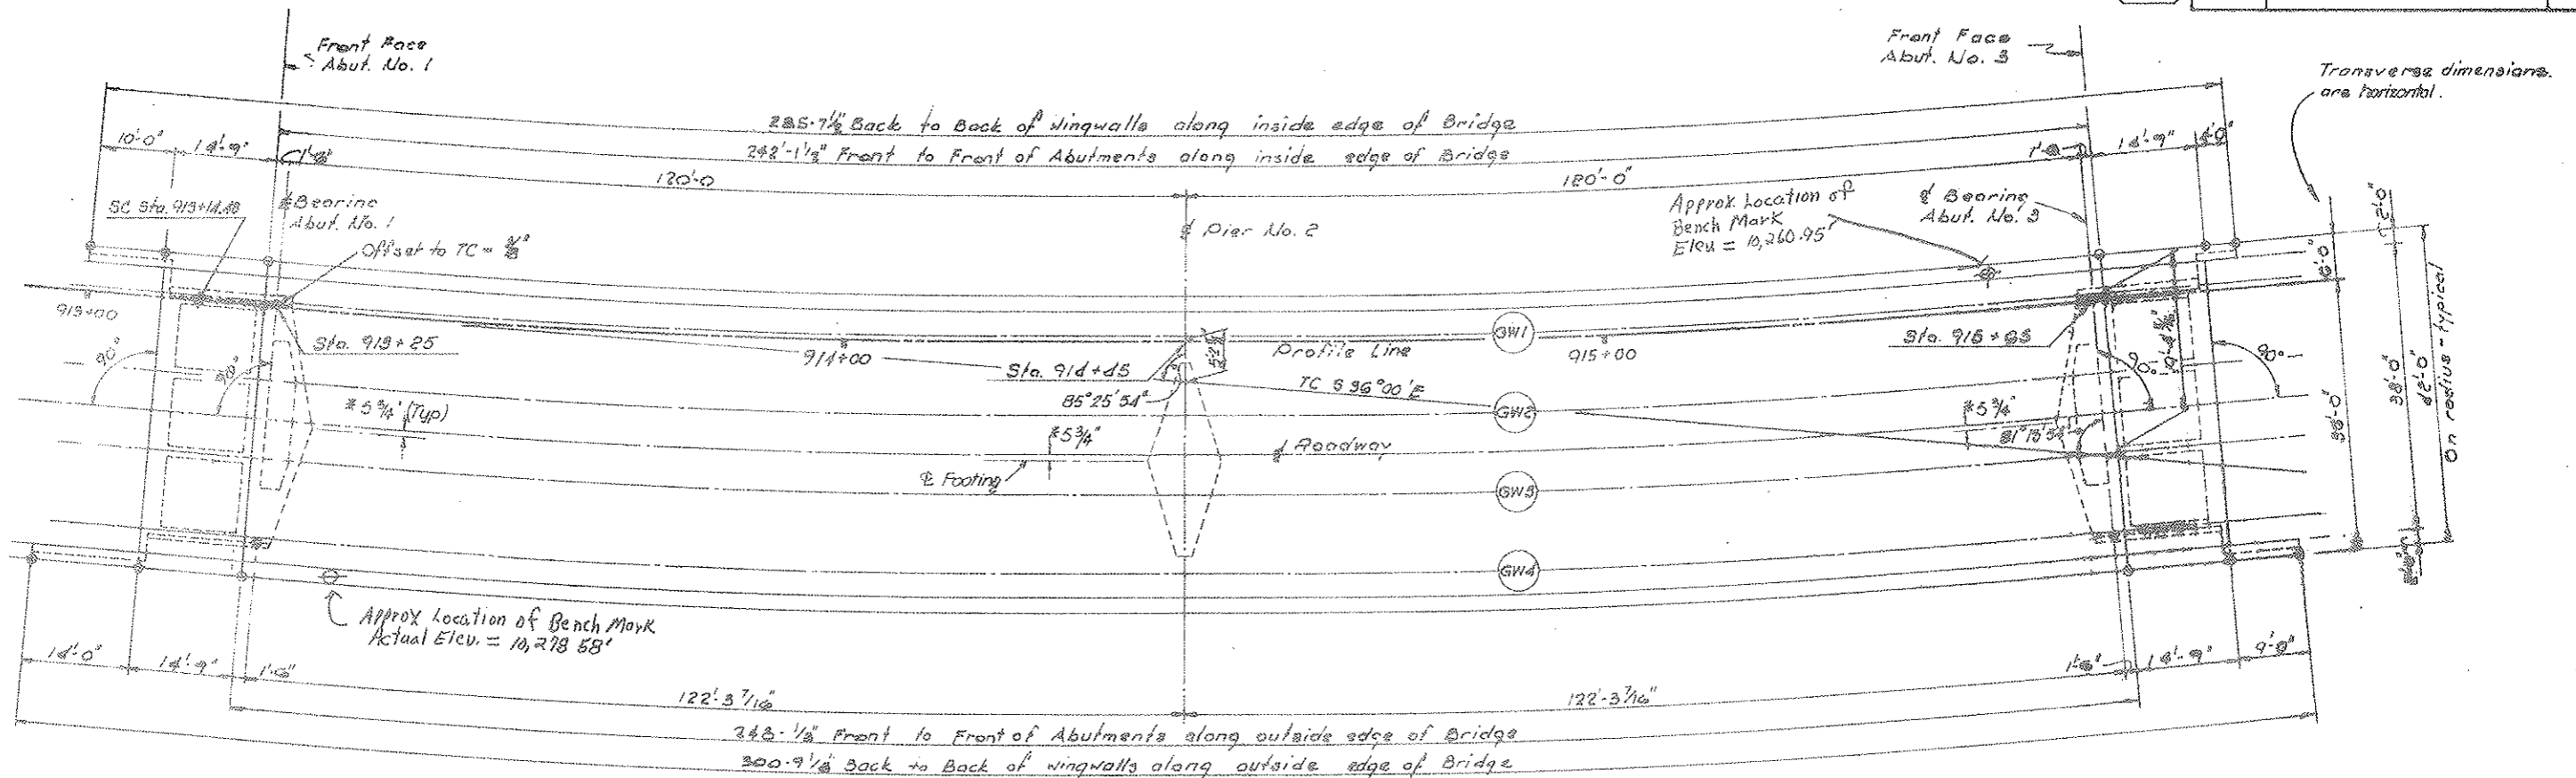 Front Face
Abut. No. 1
Front Face
Abut. No. 3
Transverse dimensions
are horizontal.
Back to Back of wingwalls along inside edge of Bridge
Front to Front of Abutments along inside edge of Bridge
10'-0"
14'-9"
120'-0
120'-0"
14'-9"
4'-0"
SC Sta.
℄ Bearing
Abut. No. 1
Offset to TC =
℄ Pier No. 2
Approx Location of
Bench Mark
Elev = 10,260.95'
℄ Bearing
Abut. No. 3
913+00
Sta. 913+25
914+00
Sta. 914+45
85°25'54"
Profile Line
GW1
915+00
TC S 36°00'E
GW2
90°
90°
* 5 3/4" (Typ)
* 5 3/4"
℄ Footing
℄ Roadway
* 5 3/4"
90°
90°
6'-0"
36'-0"
38'-0"
42'-0"
On radius - typical
GW3
GW4
Approx Location of Bench Mark
Actual Elev. = 10,278.58'
14'-0"
14'-9"
1'-6"
14'-9"
122'-3 7/16"
122'-3 7/16"
Front to Front of Abutments along outside edge of Bridge
Back to Back of wingwalls along outside edge of Bridge